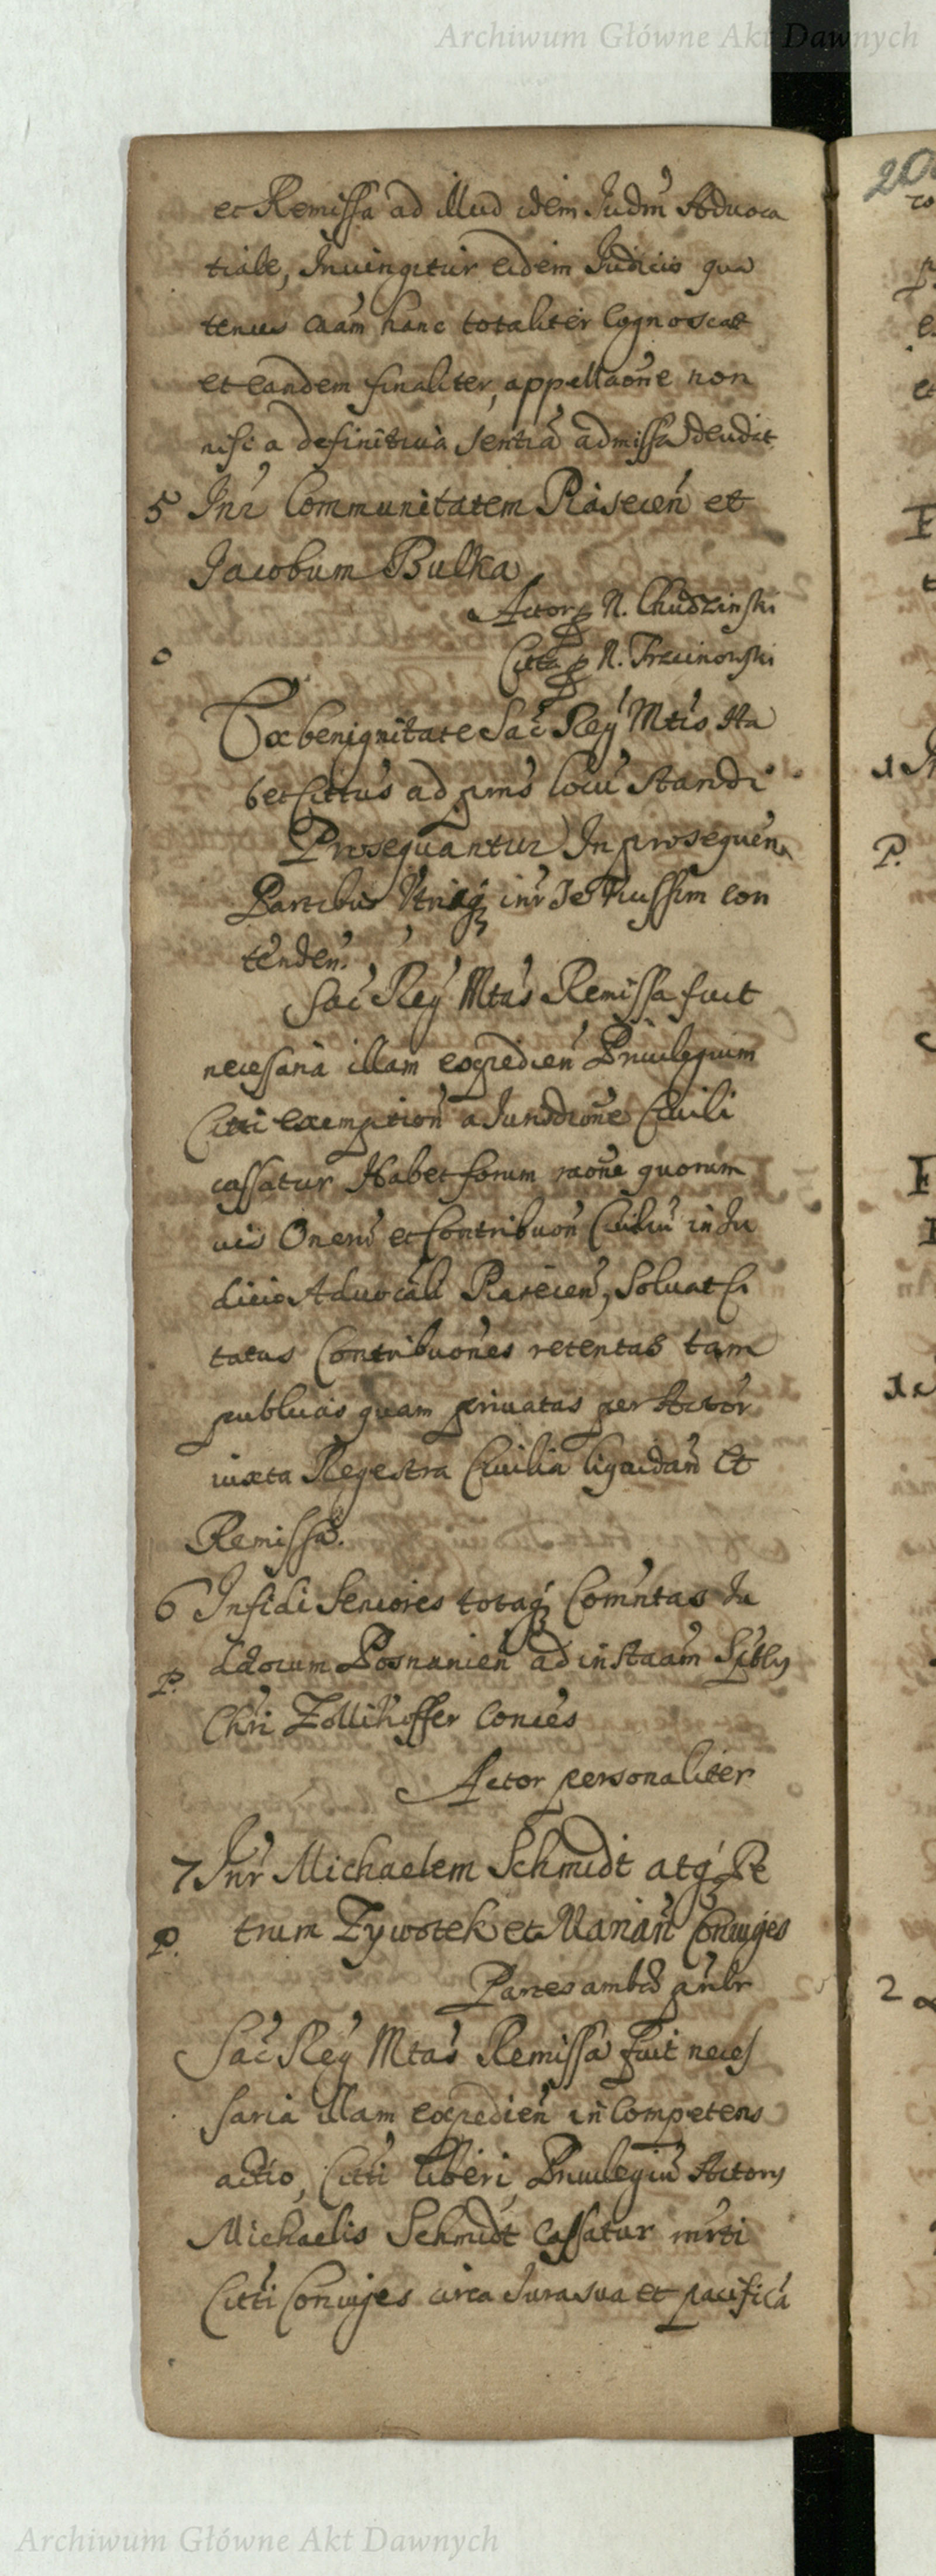 Archiwum Główne Akt Dawnych
et Remissa ad illud idem Judm Advoca
tiale, Iniungitur eidem Judicio qua
tenus caam hanc totaliter Cognoscat
et eandem finaliter, appellaone non
nisi a definitiva sentia admissa deudit
5 Inr Communitatem Piasecen et
Jacobum Bulka
Actor p N. Chudzinski
Citta p N. Trecinowski
o
Ex benignitate Sac Rey Mtis Ha
bet Cittus ad pms locu standi
Prosequantur In prosequen
Partibus Utriaq inr se fusissim con
tenden.
Sac Rey Mtas Remissa fuit
necessaria illam expedien Privilegium
Citti exemption a Jurisdione Civili
cassatur Habet forum raone quorum
vis Oneru et Contribuon Civiliu in Ju
dicio Advocali Piasecen, Solvat Ci
tatus Contribuones retentas tam
publicas quam privatas per Actor
iuxta Regestra Civilia liquidan Et
Remissa.
6 Infidi Seniores totaq Comntas Ju
P. daorum Posnanien ad instaam Sptlis
Chri Zollihoffer Conces
Actor personaliter
7 Inr Michaelem Schmidt atq Pe
P. trum Zywotek et Marian Coniuges
Partes ambo pnlr
Sac Rey Mtas Remissa fuit neces
saria illam expedien incompetens
actio, Citti liberi, Privilegiu Actoris
Michaelis Schmidt Cassatur mrti
Citti Coniuges circa Jura sua et pacifica
20
2
Archiwum Główne Akt Dawnych